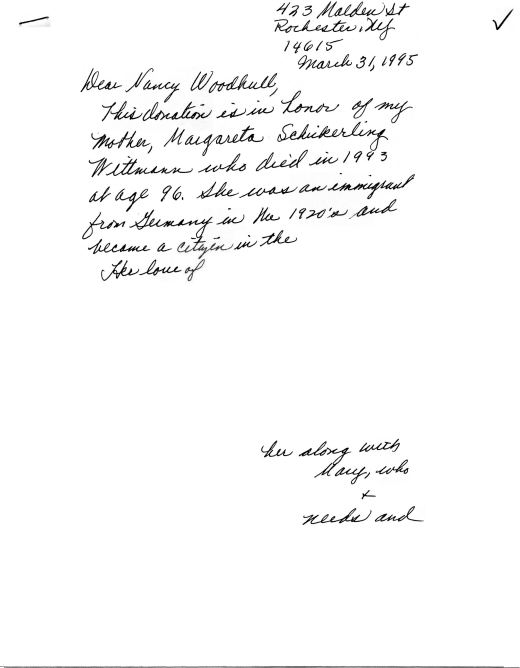 423 Malden St
Rochester, NY
14615
March 31, 1995
Dear Nancy Woodhull,
This donation is in honor of my
mother, Margareta Schikerling
Wittmann who died in 1993
at age 96. She was an immigrant
from Germany in the 1920's and
became a citizen in the
The love of
her along with
Mary, who
+
needs and